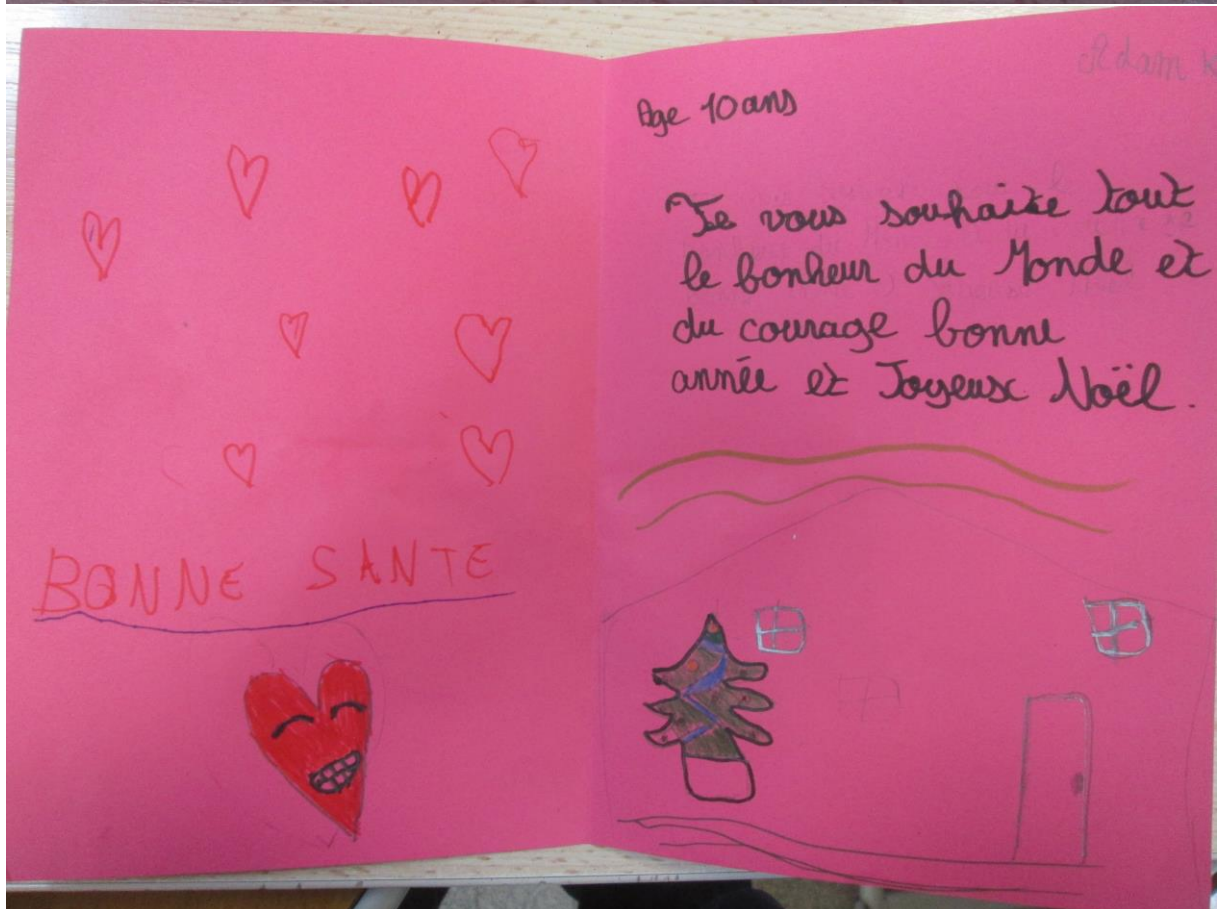 BONNE SANTE
Adam K
Age 10 ans
Je vous souhaite tout
le bonheur du Monde et
du courage bonne
année et Joyeux Noël.